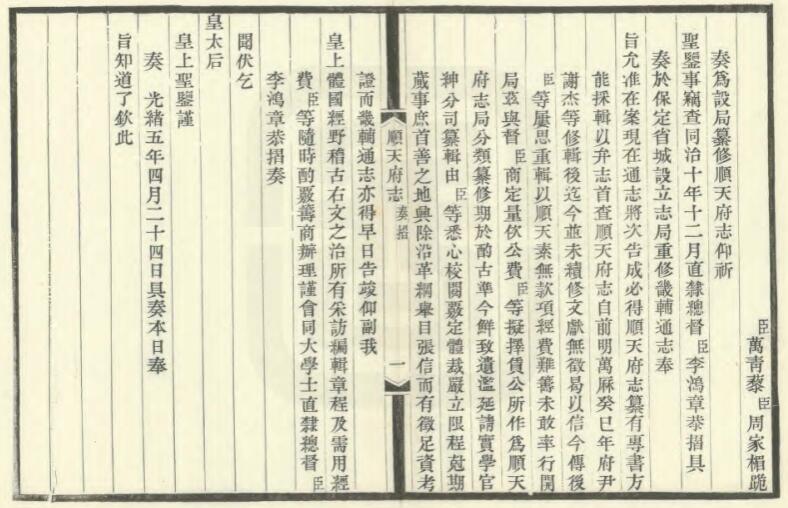 臣萬青藜臣周家楣跪
奏爲設局纂修順天府志仰祈
聖鑒事竊查同治十年十二月直隸總督臣李鴻章恭摺具
奏於保定省城設立志局重修畿輔通志奉
旨允准在案現在通志將次告成必得順天府志纂有專書方
能採輯以弁志首查順天府志自前明萬厤癸巳年府尹
謝杰等修輯後迄今並未續修文獻無徵曷以信今傳後
臣等屢思重輯以順天素無款項經費難籌未敢率行開
局茲與督臣商定量佽公費臣等擬擇賃公所作爲順天
府志局分類纂修期於酌古準今鮮致遺濫延請實學官
紳分司纂輯由臣等悉心校閱覈定體裁嚴立限程剋期
蕆事庶首善之地興除沿革綱舉目張信而有徵足資考
順天府志 奏摺 一
證而畿輔通志亦得早日告竣仰副我
皇上體國經野稽古右文之治所有采訪編輯章程及需用經
費臣等隨時酌覈籌商辦理謹會同大學士直隸總督臣
李鴻章恭摺奏
聞伏乞
皇太后
皇上聖鑒謹
奏 光緒五年四月二十四日具奏本日奉
旨知道了欽此